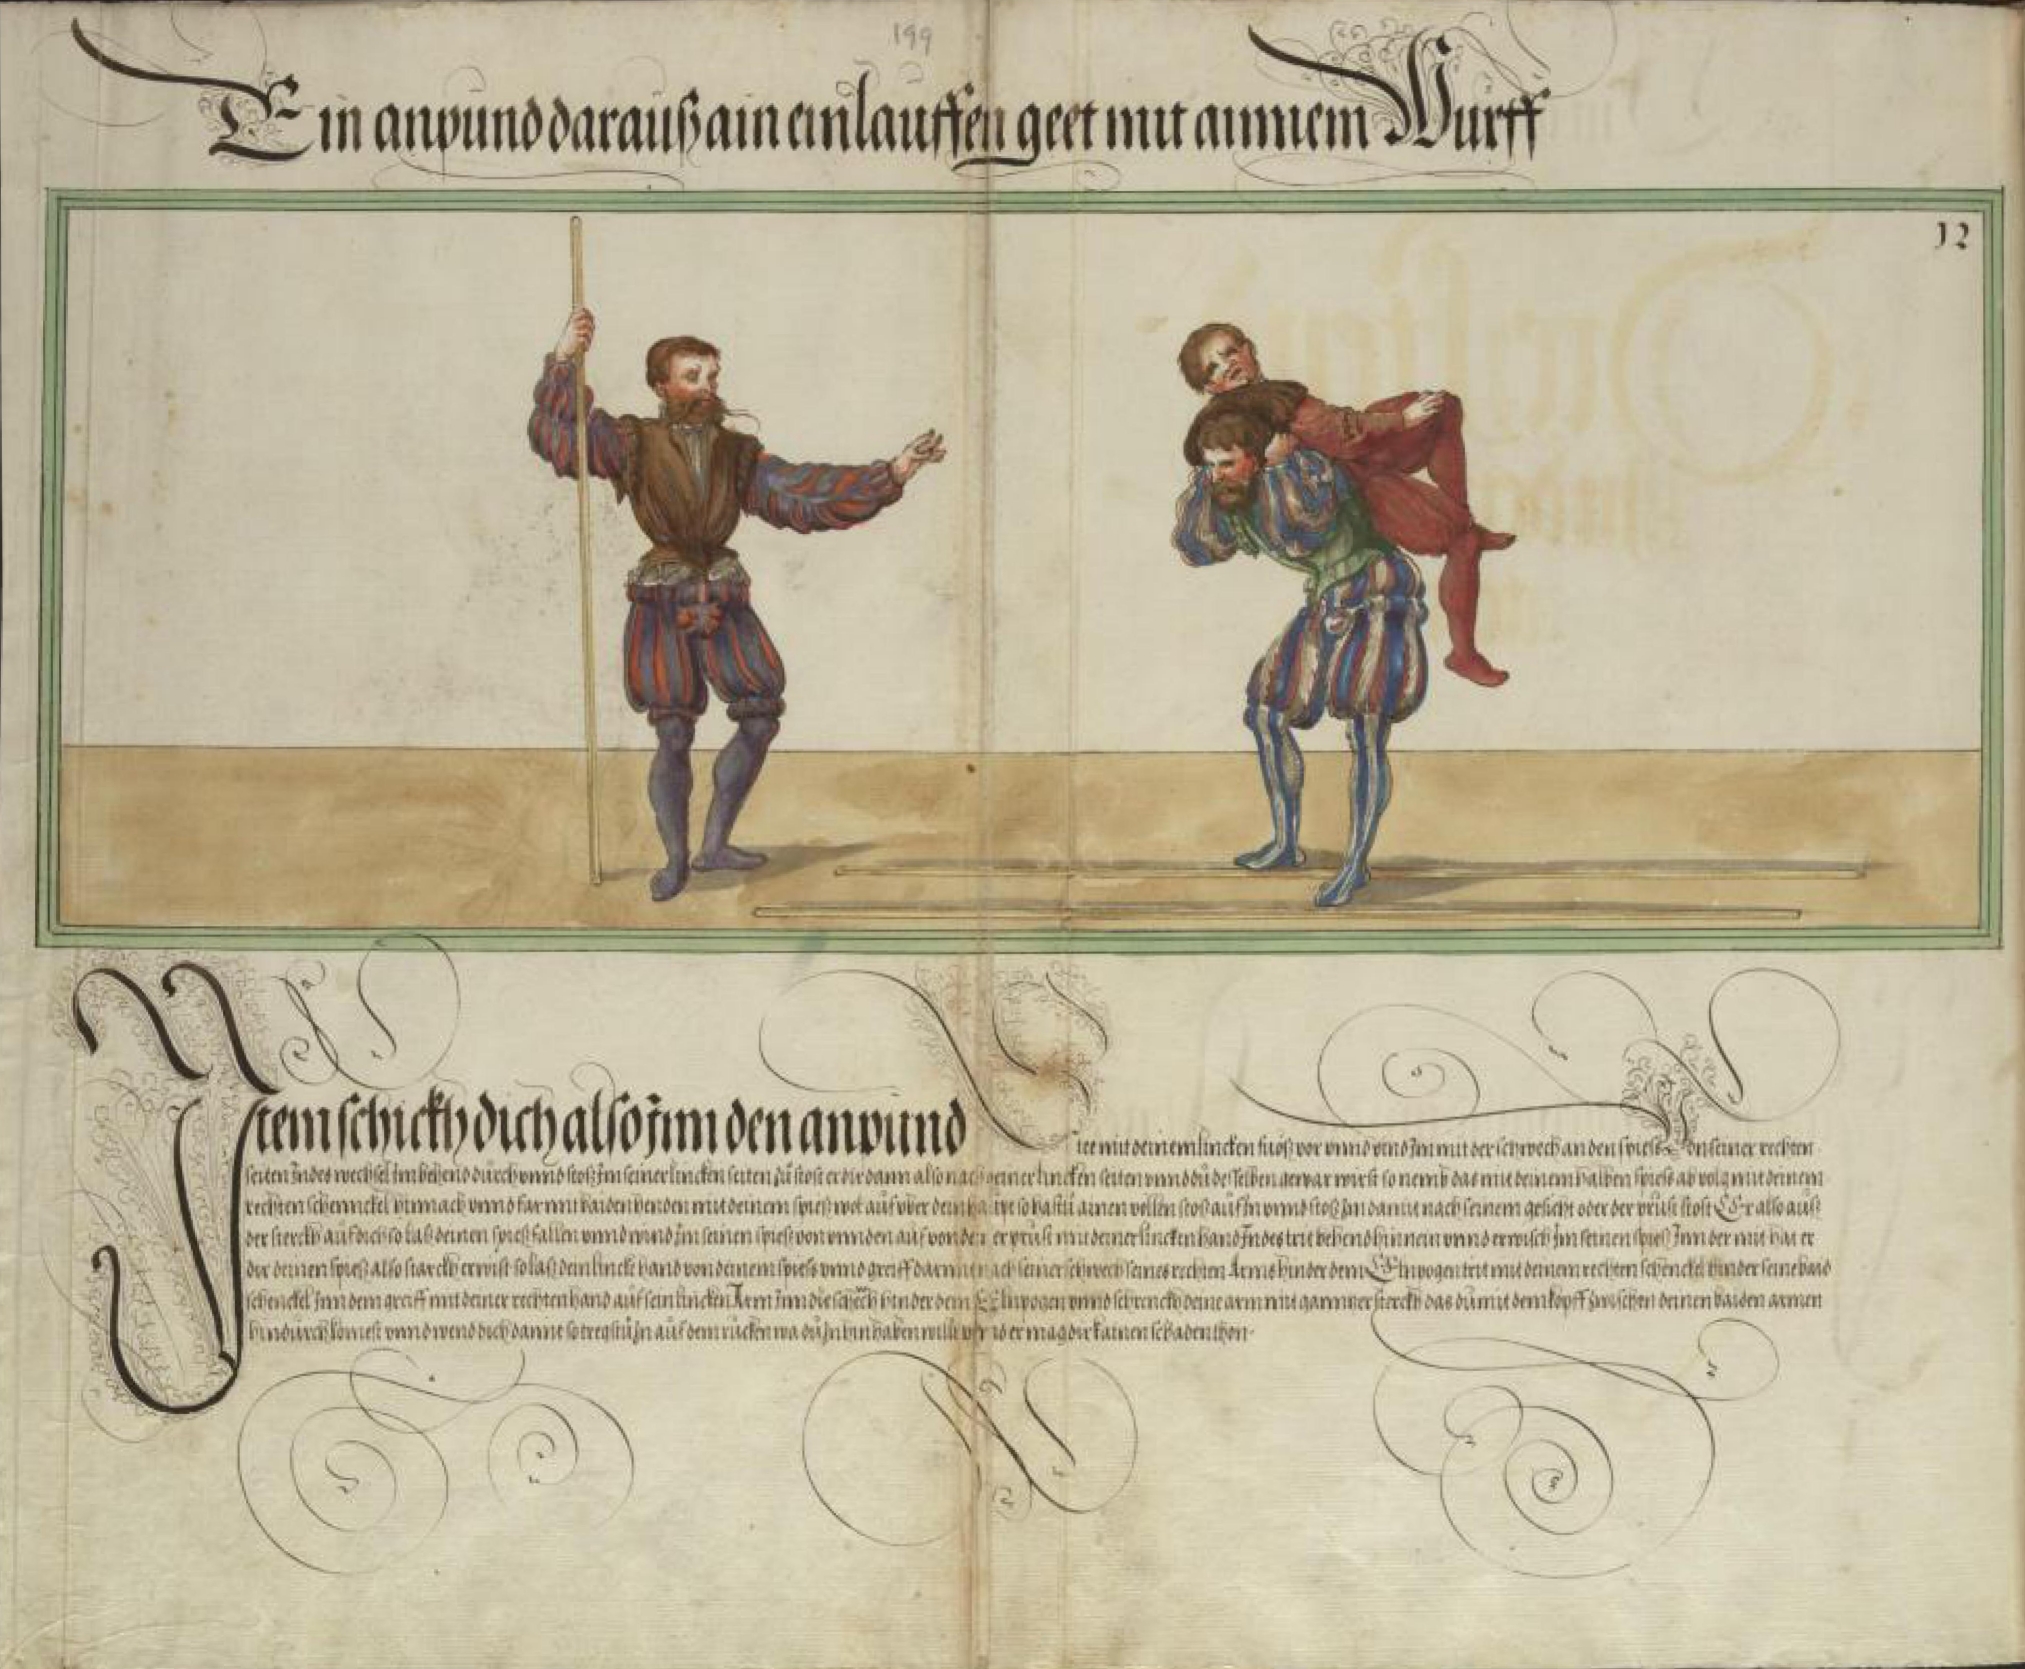 199
Ein anpund darauß ain einlauffen geet mit ainnem Wurff
12
Item schickh dich also Inn den anpund
trit mit deinem lincken fuoß vor vnnd pind Im mit der schwech an den spiess Von seiner rechten
seiten Indes wechsel Im behend durch vnnd stoß Im seiner lincken seiten zu stost er dir dann also nach deiner lincken seiten vnnd du desselben gewar wirst so nemb das mit deinem halben spiess ab volg mit deinem
rechten schennckel hinnach vnnd far mit baiden henden mit deinem spieß wol auf vber dein haupt so hastu ainen vollen stoß auf In vnnd stoß Im damit nach seinem gesicht oder der prust stost Er also auß
der sterckh auf dich so laß deinen spieß fallen vnnd wind Im seinen spieß von vnnden auf von deiner prust mit deiner lincken hand Indes trit behend hinnein vnnd erwisch Im seinen spieß Inn der mit hat er
dir deinen spieß also starckh erwist so laß dein lincke hand von deinem spiess vnnd greiff darmit nach seiner schwech seines rechten Arms hinder dem Elnpogen trit mit deinem rechten schenckel hinder seine baid
schenckel Inn dem greiff mit deiner rechten hand auf sein lincken Arm Inn die schwech hinder dem Elnpogen vnnd schrenckh deine arm mit gannzer sterckh das du mit dem kopff zwischen deinen baiden armen
hindurch komest vnnd wend dich damit so tregstu In auf dem rucken wa du In hin haben wilt vnnd er mag dir kainen schaden thon